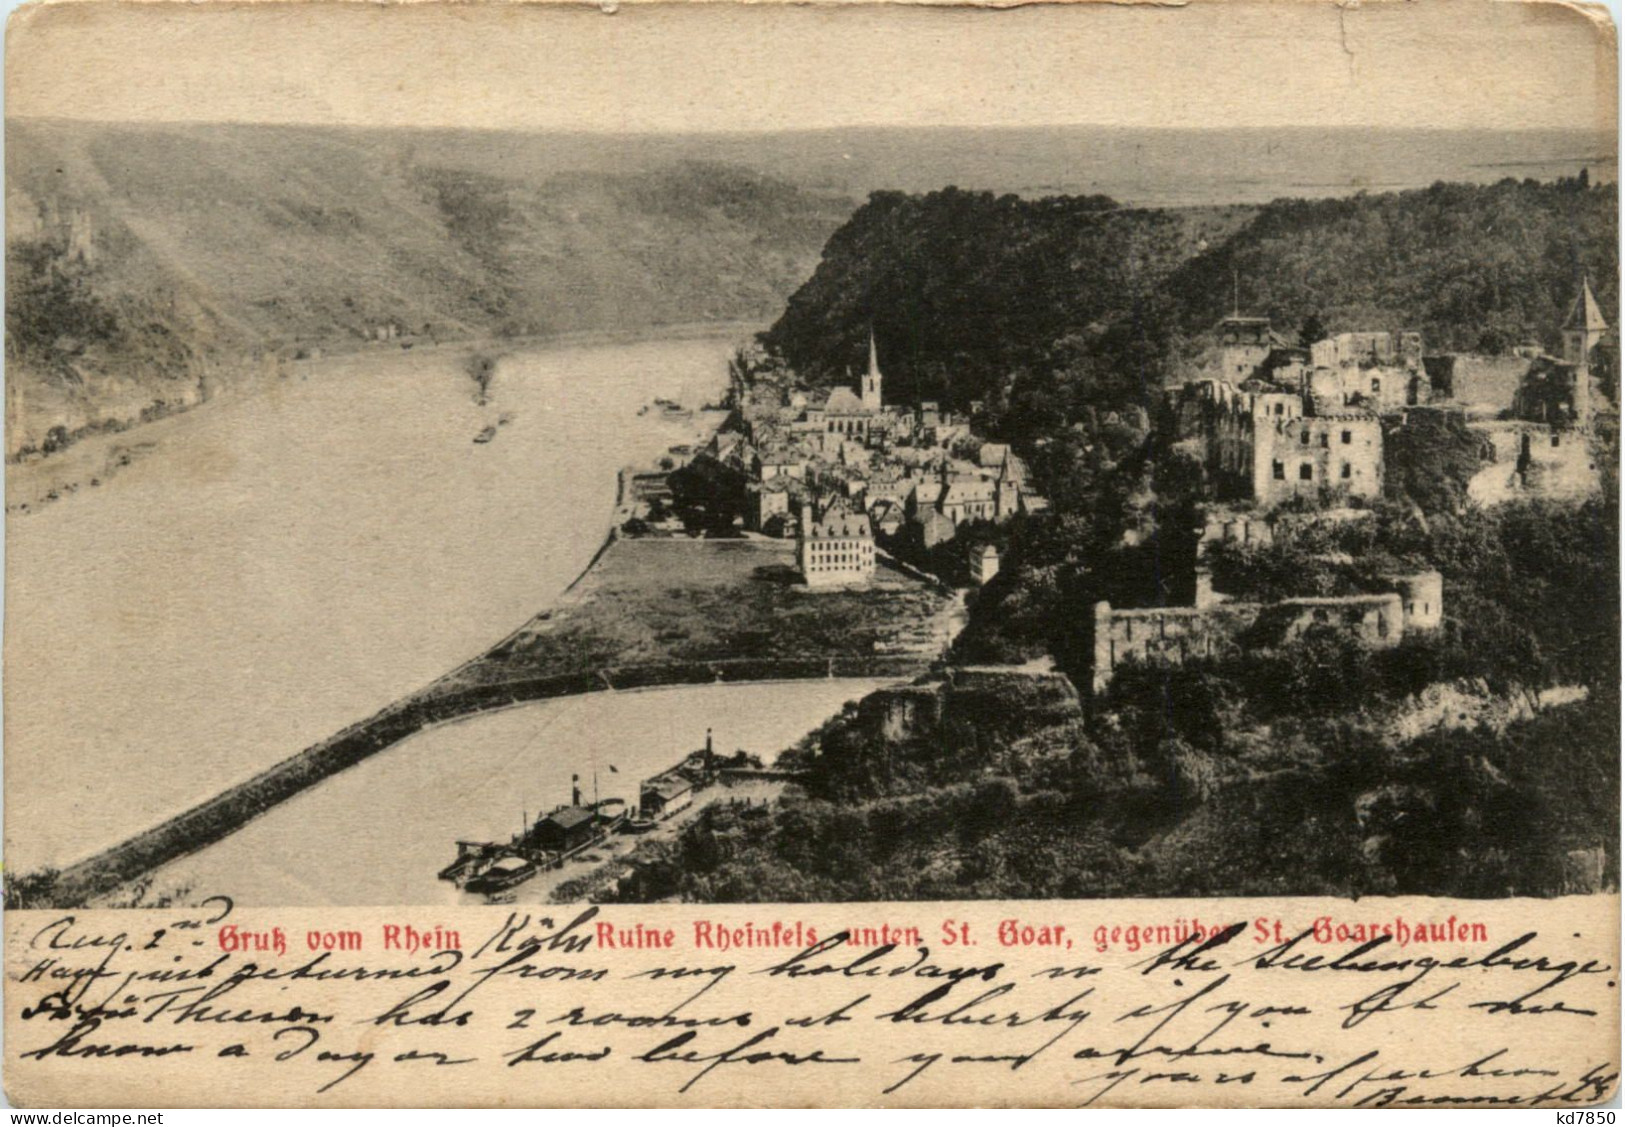 Aug. 2nd Gruß vom Rhein Köln Ruine Rheinfels unten St. Goar, gegenüber St. Goarshausen
Have just returned from my holidays in the Siebengebirge.
Frau Thiesen has 2 rooms at liberty if you let me
know a day or two before you arrive.
yours affection
Bennett
kd7850